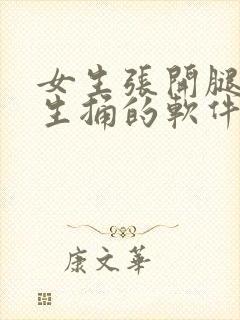 女生張開腿
生捅的軟件
康文華